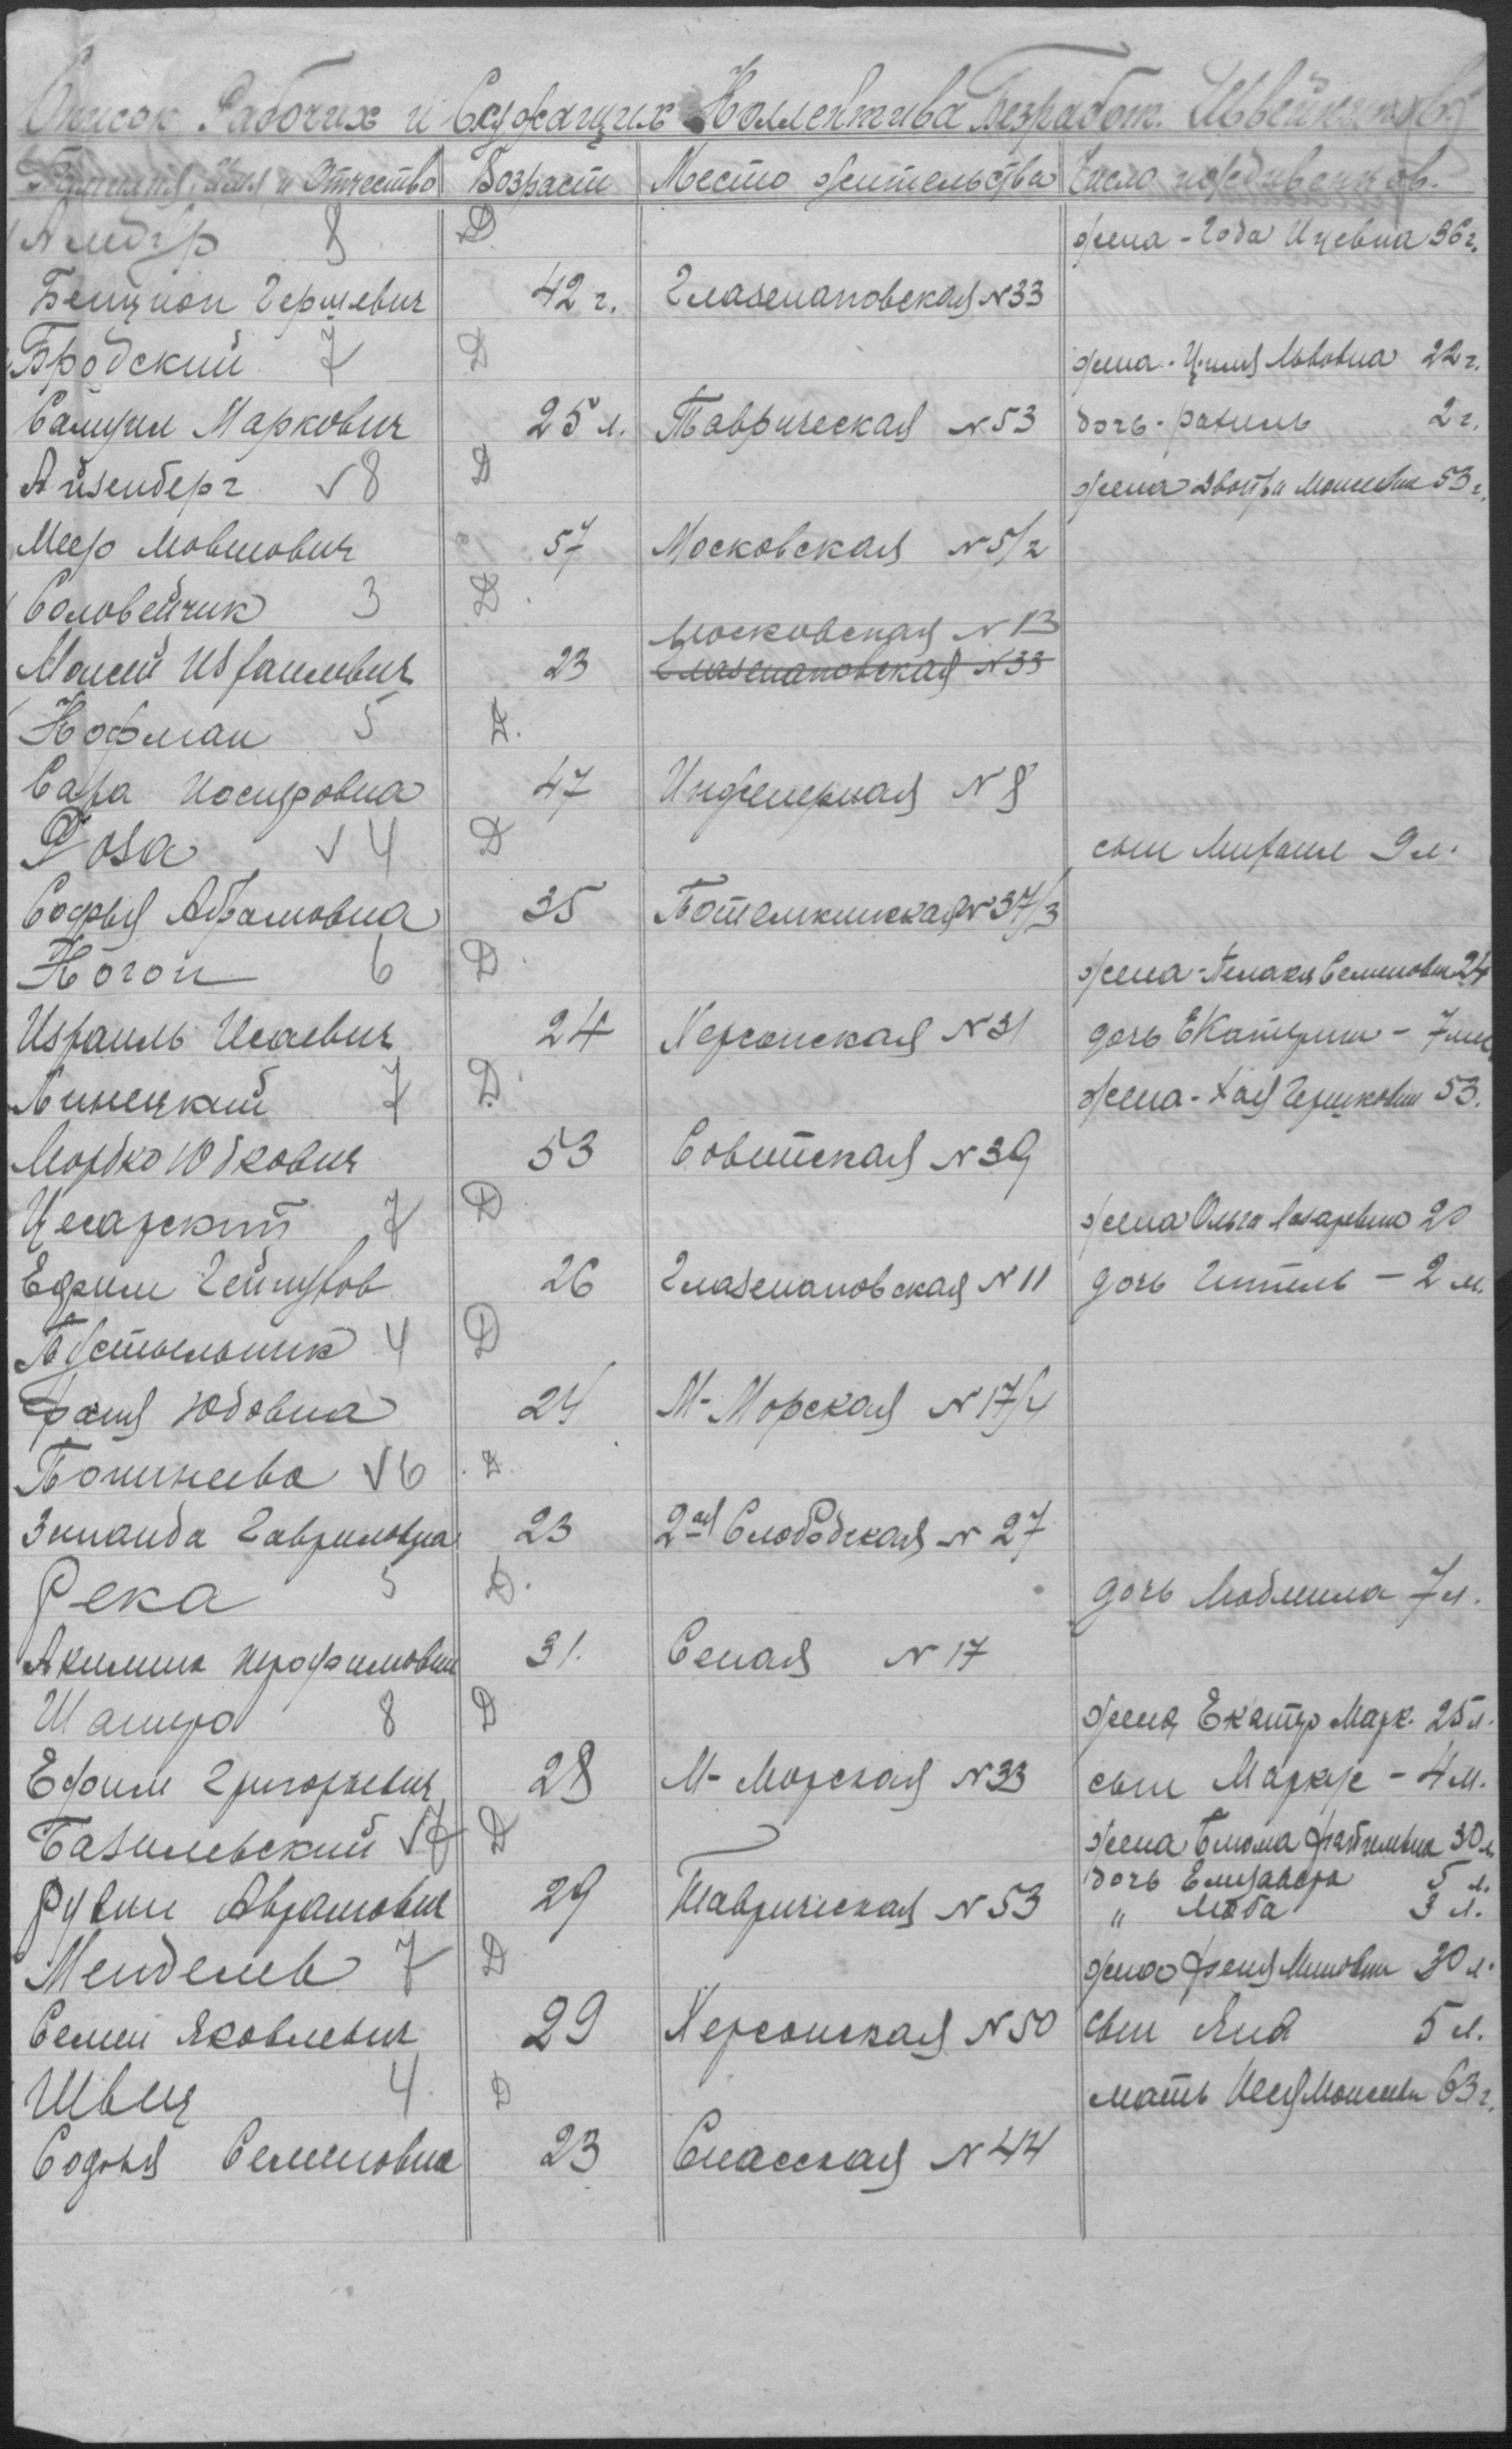 Список Рабочих и Служащих Коллектива Безработ. Швейников
Фамилия, Имя и Отчество Возраст Место жительства Число иждивенцов.
8 Д. жена - Года Ицевна 36 г.
Бенцион Гершевич 42 г. Глазенаповская N 33
Бродский 7 Д жена - Циля Львовна 22 г.
Самуил Маркович 25 л. Таврическая N 53 дочь - рахиль 2 г.
Айзенберг √ 8 Д жена Двойра Моисеевн 53 г.
Меер Мовшович 57 Московская N 5/2
Соловейчик 3 Д.
Московская N 13
Моисей Израилевич 23 Глазенаповская N 33
Кофман 5 Д.
Сара Иосифовна 47 Инженерная N 8
Роза √ 4 Д сын Михаил 9 л.
Софья Абрамовна 35 Потемкинская N 37/3
Когон 6 Д. жена - Пелагея Семеновн 24
Израиль Исаевич 24 Херсонская N 31 дочь Екатерин - 7 мес
Линецкий 7 Д. жена - Хая Гершковн 53.
Мордко Юдкович 53 Советская N 39
Цесарский 7 Д жена Ольга Лазаревна 20
Ефрим Геймухов 26 Глазенаповская N 11 дочь Гитель - 2 м.
Пустыльник 4 Д
Фаня Юдовна 24 М - Морская N 17/4
√ 6 Д.
Зинаида Гавриловна 23 2ая Слободская N 27
Река 5 Д. дочь Людмила 7 л.
Акилина 31. Сеная N 17
Шапиро 8 Д жена Екатер Марк. 25 л.
Ефим Григорьевич 28 М - Морская N 33 сын Маркус - 4 м.
Базилевский √ 7 Д жена Блюма 30 л.
Рувин Аврамович 29 Таврическая N 53 дочь Елизавета 5 л.
" Люба 3 л.
Менделев 7 Д жена Феня 30 л.
Семен Яковлевич 29 Херсонская N 50 сын Яша 5 л.
Швец 4 Д мать Моисеевн 63 г.
Софья Семеновна 23 Спасская N 44